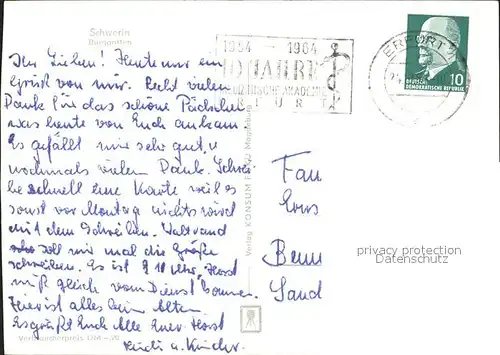 Schwerin
Burggarten
Ihr Lieben! Heute nur ein
Gruß von mir. Recht vielen
Dank für das schöne Päckchen
was heute von Euch ankam.
Es gefällt mir sehr gut, u
nochmals vielen Dank. Schrei
be schnell eine Karte weil es
sonst vor Montag nichts wird
mit dem Schreiben. Waltraud
soll mir mal die Größe
schreiben. Es ist Uhr, Horst
muß gleich vom Dienst kommen.
Hier ist alles beim Alten.
Es grüßt Euch Alle Euer Horst
Heidi u. Kinder.
Verbraucherpreis
Verlag KONSUM Magdeburg
1954 – 1964
10 JAHRE
MEDIZINISCHE AKADEMIE
ERFURT
ERFURT
DEUTSCHE
DEMOKRATISCHE REPUBLIK
10
privacy protection
Datenschutz